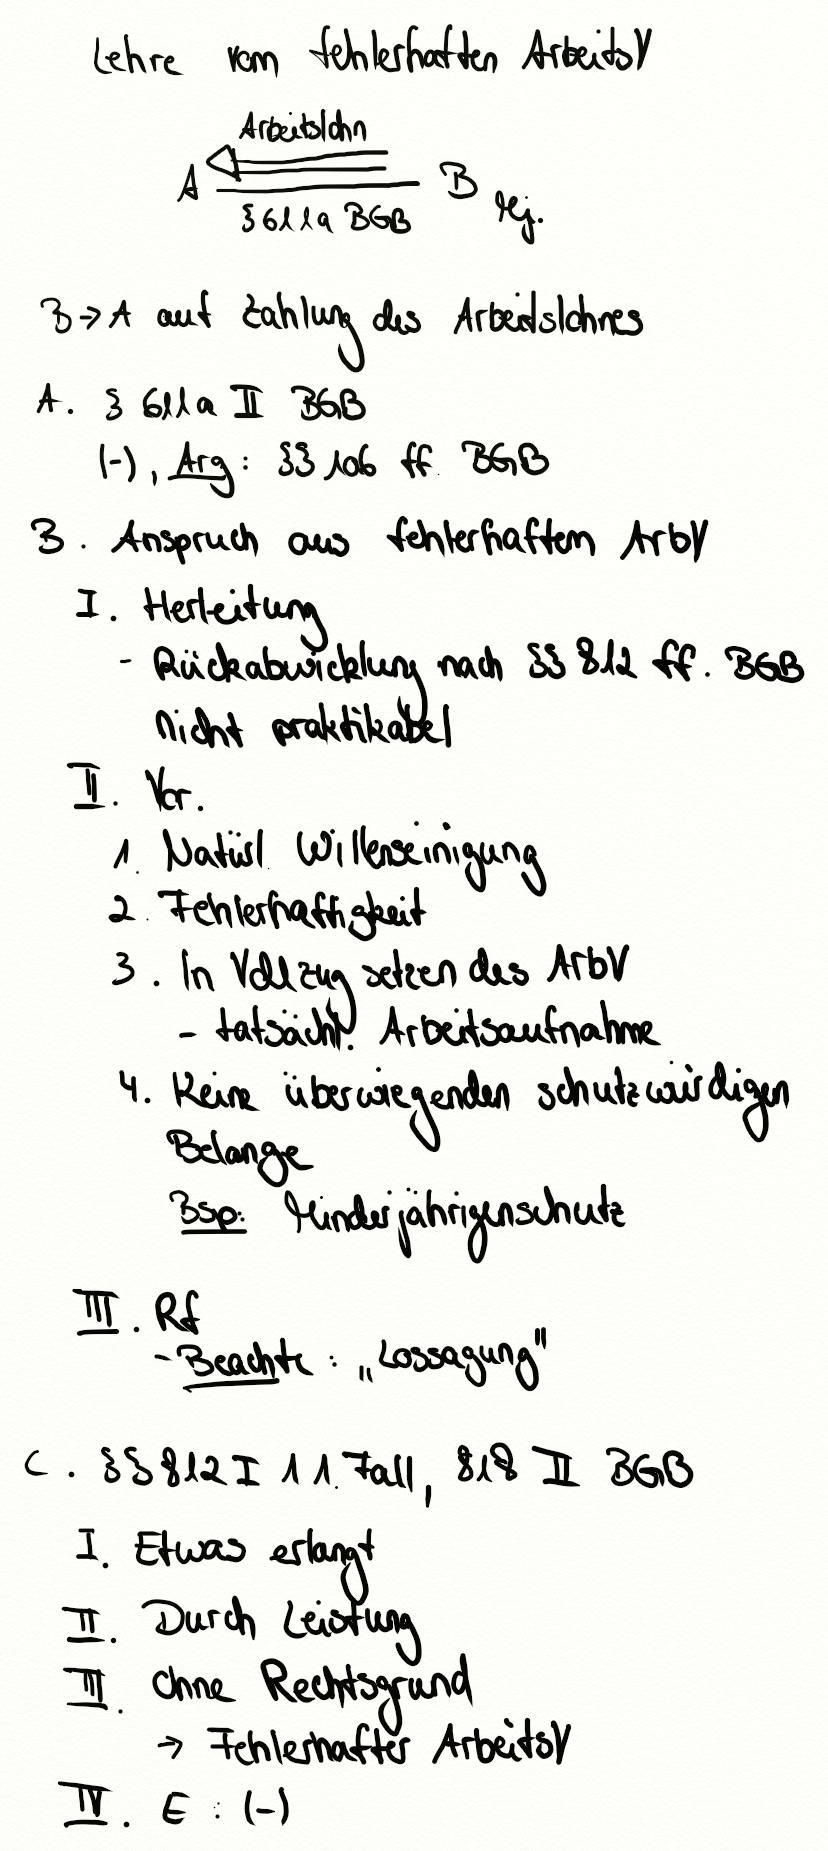 Lehre vom fehlerhaften ArbeitsV
Arbeitslohn
A B Mj.
§ 611a BGB
B → A auf Zahlung des Arbeitslohnes
A. § 611a II BGB
(-), Arg: §§ 106 ff. BGB
B. Anspruch aus fehlerhaftem ArbV
I. Herleitung
- Rückabwicklung nach §§ 812 ff. BGB
nicht praktikabel
II. Vor.
1. Natürl. Willenseinigung
2. Fehlerhaftigkeit
3. In Vollzug setzen des ArbV
- tatsächl. Arbeitsaufnahme
4. Keine überwiegenden schutzwürdigen
Belange
Bsp: Minderjährigenschutz
III. Rf
- Beachte: „Lossagung"
C. §§ 812 I 1 1. Fall, 818 II BGB
I. Etwas erlangt
II. Durch Leistung
III. Ohne Rechtsgrund
→ Fehlerhafter ArbeitsV
IV. E: (-)